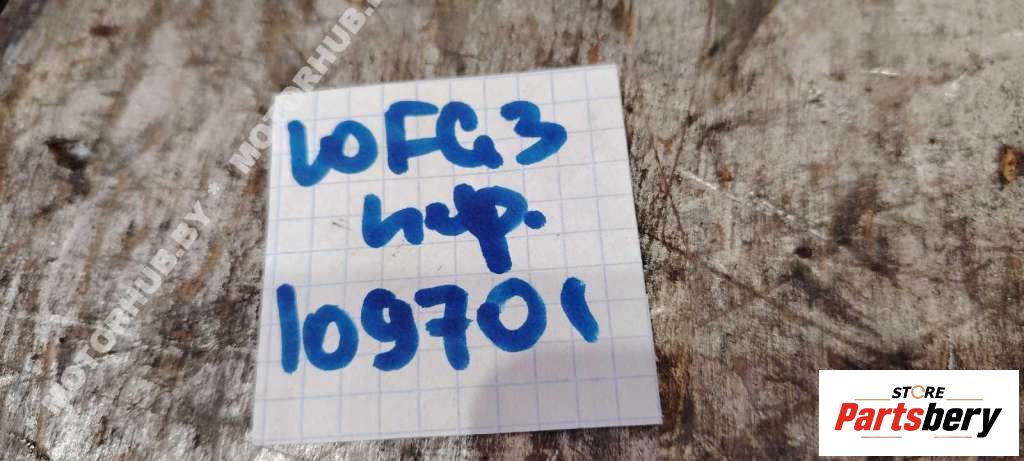 MOTORHUB.BY
MOTORHUB.BY
10FG3
пер.
109701
STORE
Partsbery